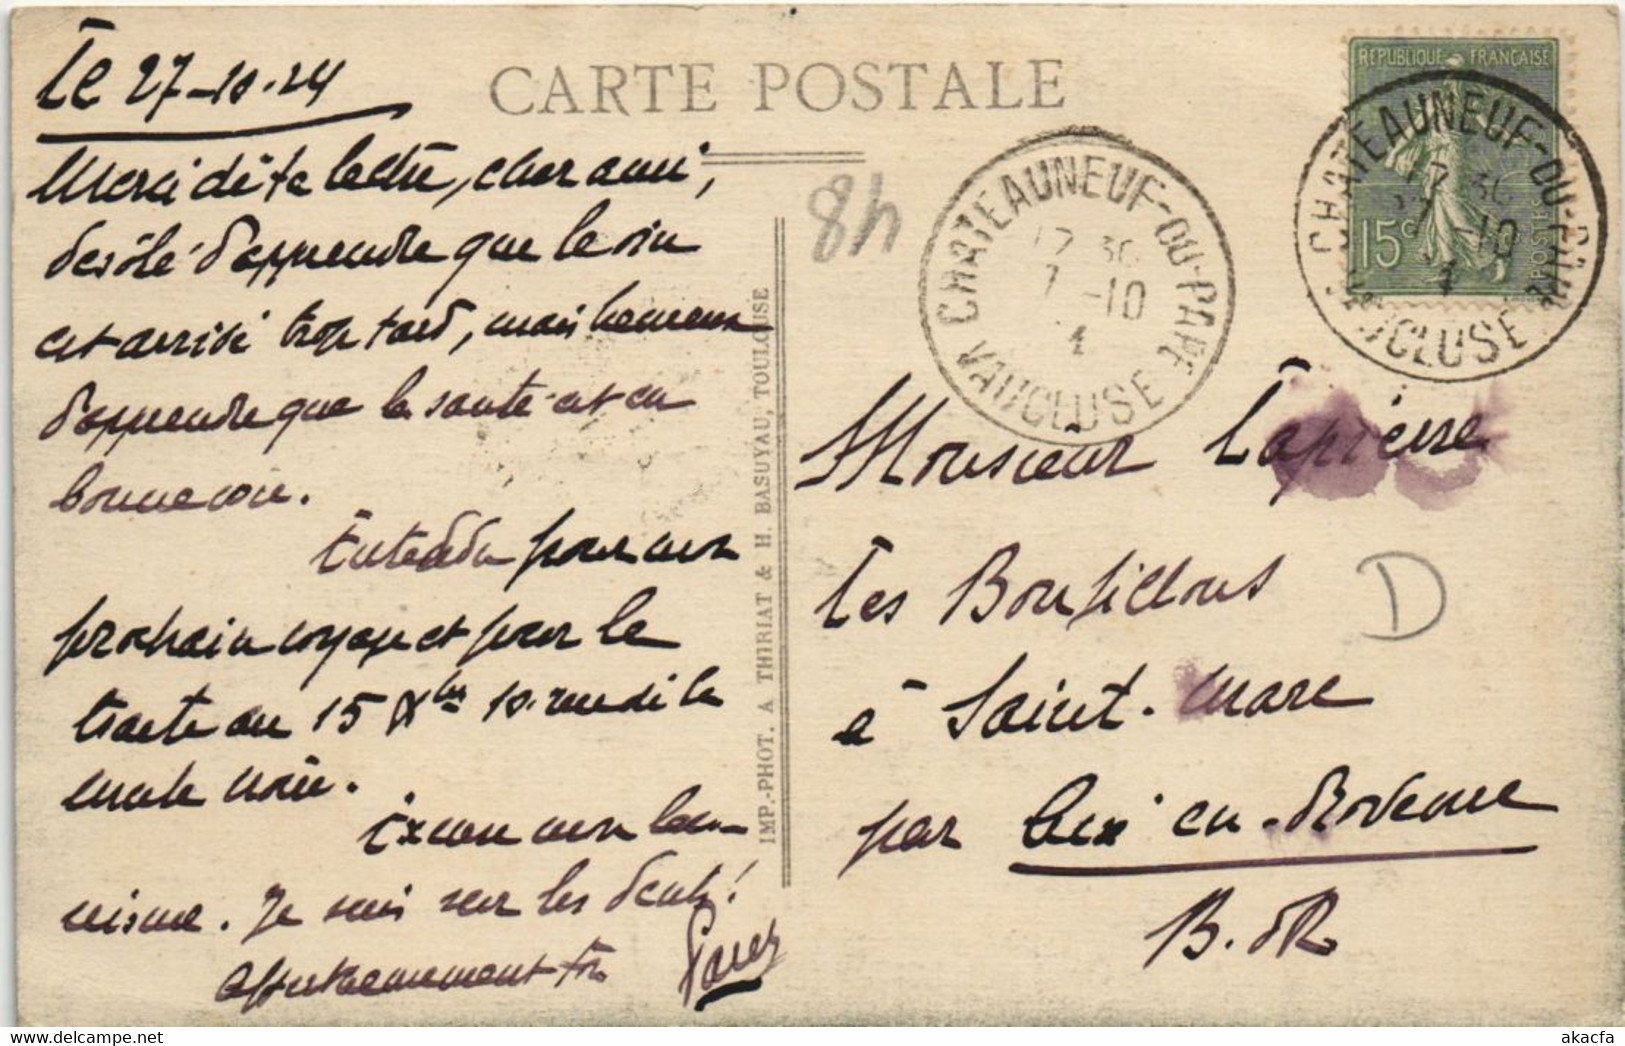 Le 27-10-24
CARTE POSTALE
Merci de ta lettre, cher ami,
désolé d'apprendre que le vin
est arrivé trop tard, mais heureux
d'apprendre que la santé est en
bonne voie.
Entendu pour mon
prochain voyage et pour la
traite au 15 Xbre
Excuse mon
Je suis sur les dents!
affectueusement
RÉPUBLIQUE FRANÇAISE
15c
POSTES
CHATEAUNEUF-DU-PAPE
17 30
7 -10
VAUCLUSE
CHATEAUNEUF-DU-PAPE
17 30
7 -10
VAUCLUSE
48
IMP.-PHOT. A THIRIAT & H. BASUYAU, TOULOUSE
Monsieur Lapierre
Les Bonfillons
à Saint-Marc
par Aix en-Provence
B. d R
D
www.delcampe.net
akacfa